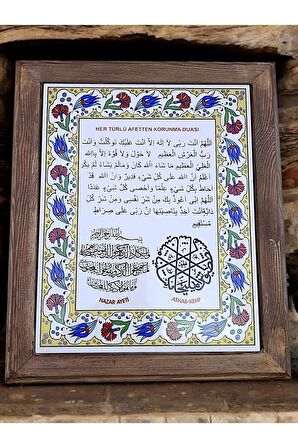 HER TÜRLÜ AFETTEN KORUNMA DUASI
اللّهُمَّ اَنْتَ رَبِّى لاَ اِلهَ اِلاَّ اَنْتَ عَلَيْكَ تَوَكَّلْتُ وَاَنْتَ
رَبُّ الْعَرْشِ الْعَظِيمِ لاَ حَوْلَ وَلاَ قُوَّةَ اِلاَّ بِاللهِ
الْعَلِىِّ الْعَظِيمِ مَا شَاءَ اللهُ كَانَ وَمَالَمْ يَشَاءْ لَمْ يَكُنْ
اَعْلَمُ اَنَّ اللهَ عَلَى كُلِّ شَىْءٍ قَدِيرٌ وَاَنَّ اللهَ قَدْ
اَحَاطَ بِكُلِّ شَىْءٍ عِلْمًا وَاَحْصَى كُلَّ شَىْءٍ عَدَدًا
اَللّهُمَّ اِنِّى اَعُوذُ بِكَ مِنْ شَرِّ نَفْسِى وَمِنْ شَرِّ كُلِّ
دَابَّةٍ اَنْتَ آخِذٌ بِنَاصِيَتِهَا اِنَّ رَبِّى عَلَى صِرَاطٍ
مُسْتَقِيمٍ
NAZAR AYETİ
ASHAB-I KEHF